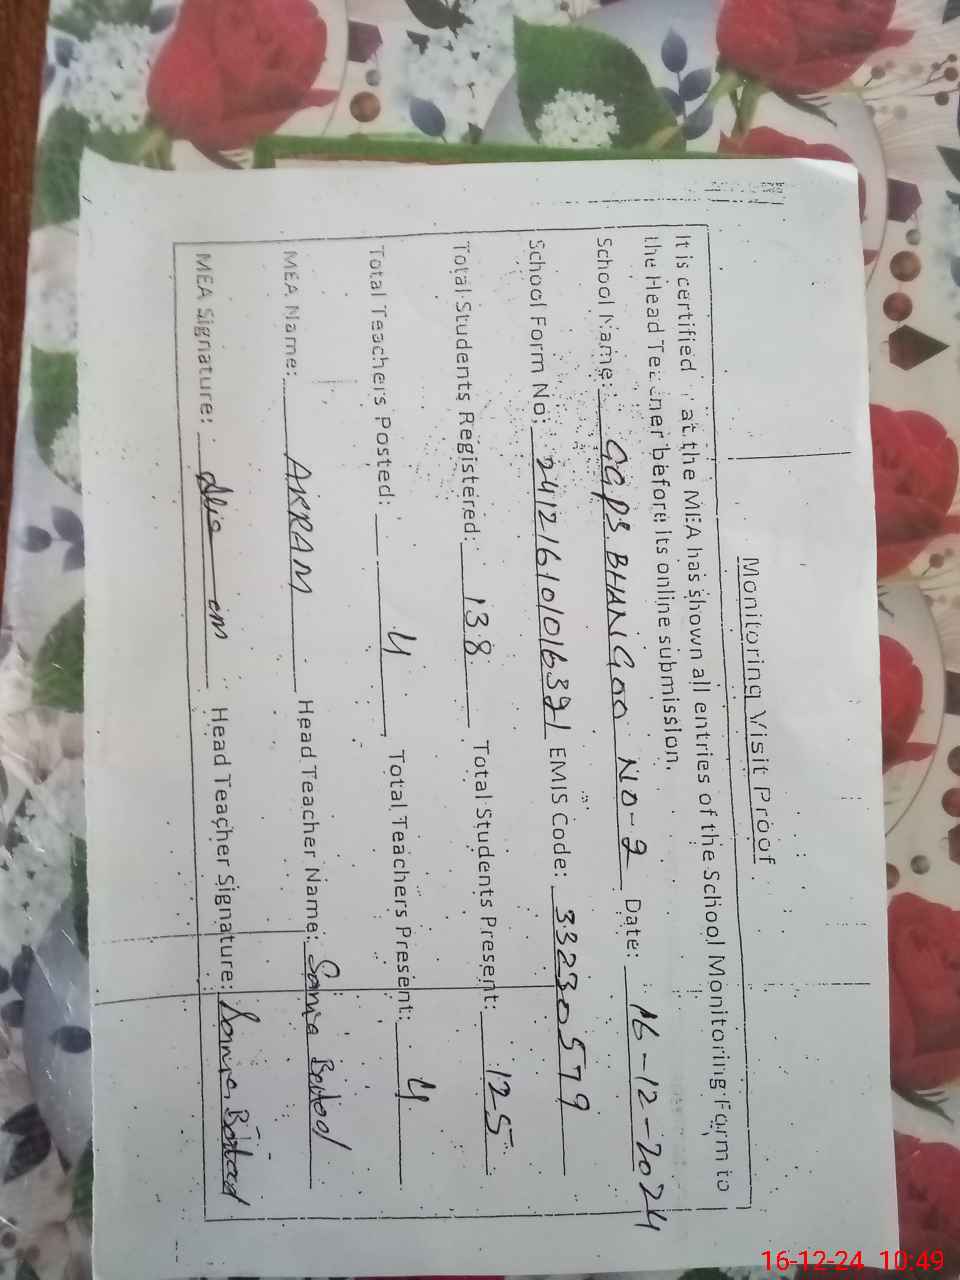 Monitoring Visit Proof
It is certified at the MEA has shown all entries of the School Monitoring Form to
the Head Teacher before its online submission.
School Name: GGPS BHANGOO NO-2 Date: 16-12-2024
School Form No: 241216101016321 EMIS Code: 33230579
Total Students Registered: 138 Total Students Present: 125
Total Teachers Posted: 4 Total Teachers Present: 4
MEA Name: AKRAM Head Teacher Name:
MEA Signature: Head Teacher Signature:
16-12-24 10:49